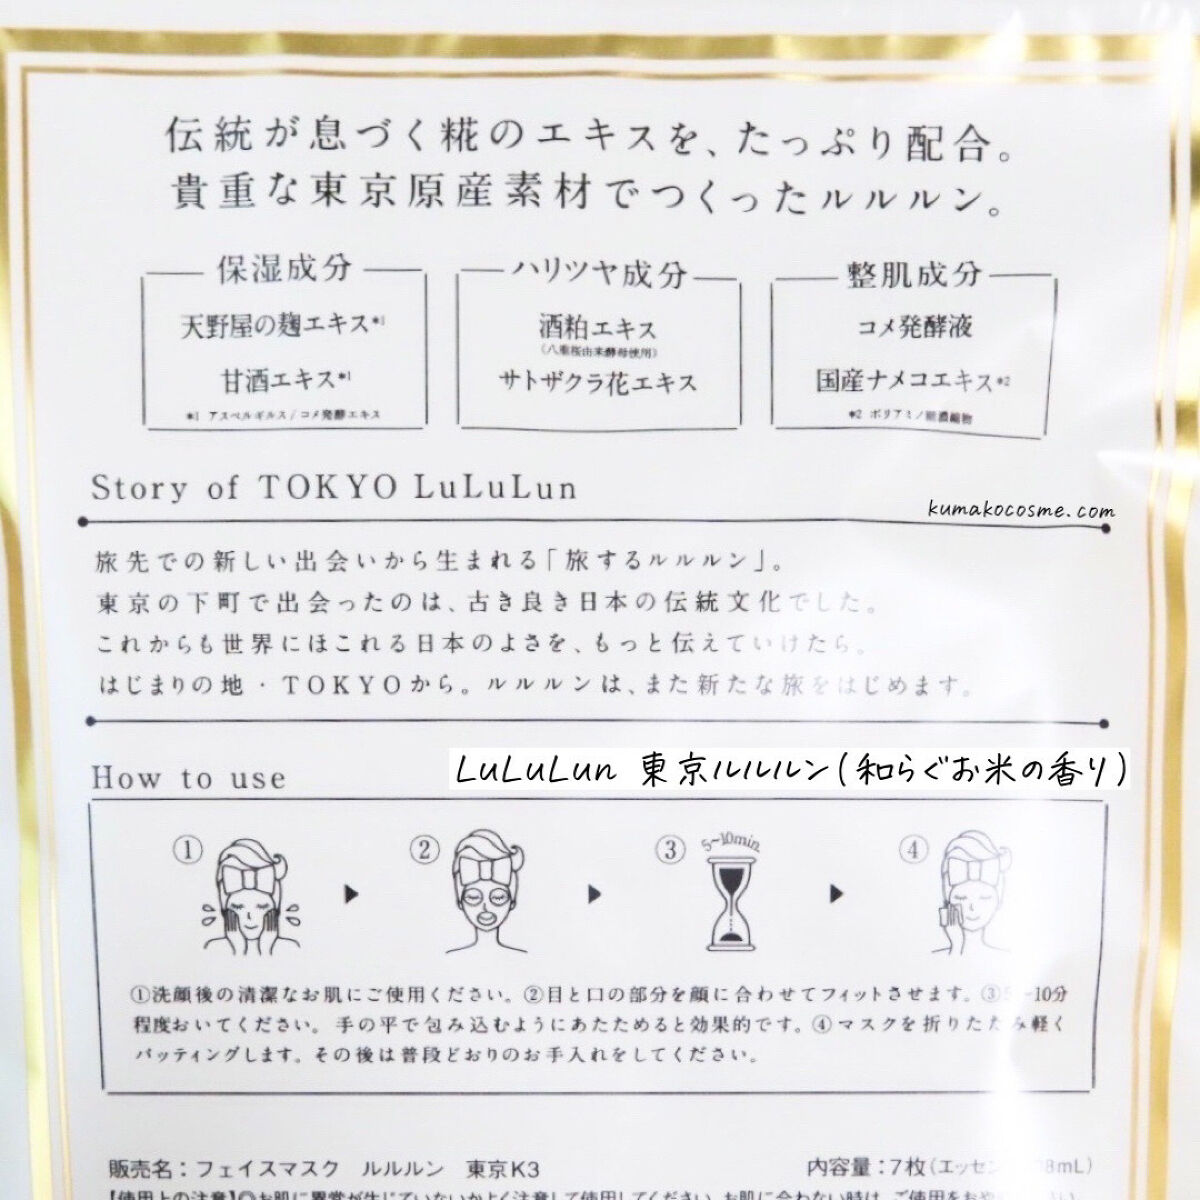 伝統が息づく糀のエキスを、たっぷり配合。
貴重な東京原産素材でつくったルルルン。
保湿成分
天野屋の麹エキス*1
甘酒エキス*1
*1 アスペルギルス/コメ発酵エキス
ハリツヤ成分
酒粕エキス
(八重桜由来酵母使用)
サトザクラ花エキス
整肌成分
コメ発酵液
国産ナメコエキス*2
*2 ポリアミノ
Story of TOKYO LuLuLun
kumakocosme.com
旅先での新しい出会いから生まれる「旅するルルルン」。
東京の下町で出会ったのは、古き良き日本の伝統文化でした。
これからも世界にほこれる日本のよさを、もっと伝えていけたら。
はじまりの地・TOKYOから。ルルルンは、また新たな旅をはじめます。
How to use
LuLuLun 東京ルルルン(和らぐお米の香り)
①
②
③ 5~10min.
④
①洗顔後の清潔なお肌にご使用ください。②目と口の部分を顔に合わせてフィットさせます。③5~10分
程度おいてください。手の平で包み込むようにあたためると効果的です。④マスクを折りたたみ軽く
パッティングします。その後は普段どおりのお手入れをしてください。
販売名：フェイスマスク ルルルン 東京K3
内容量：7枚(エッセン 8mL)
【使用上の注意】◎お肌に異常が生じていないかよく注意して使用してください。お肌に合わない時は、ご使用をお